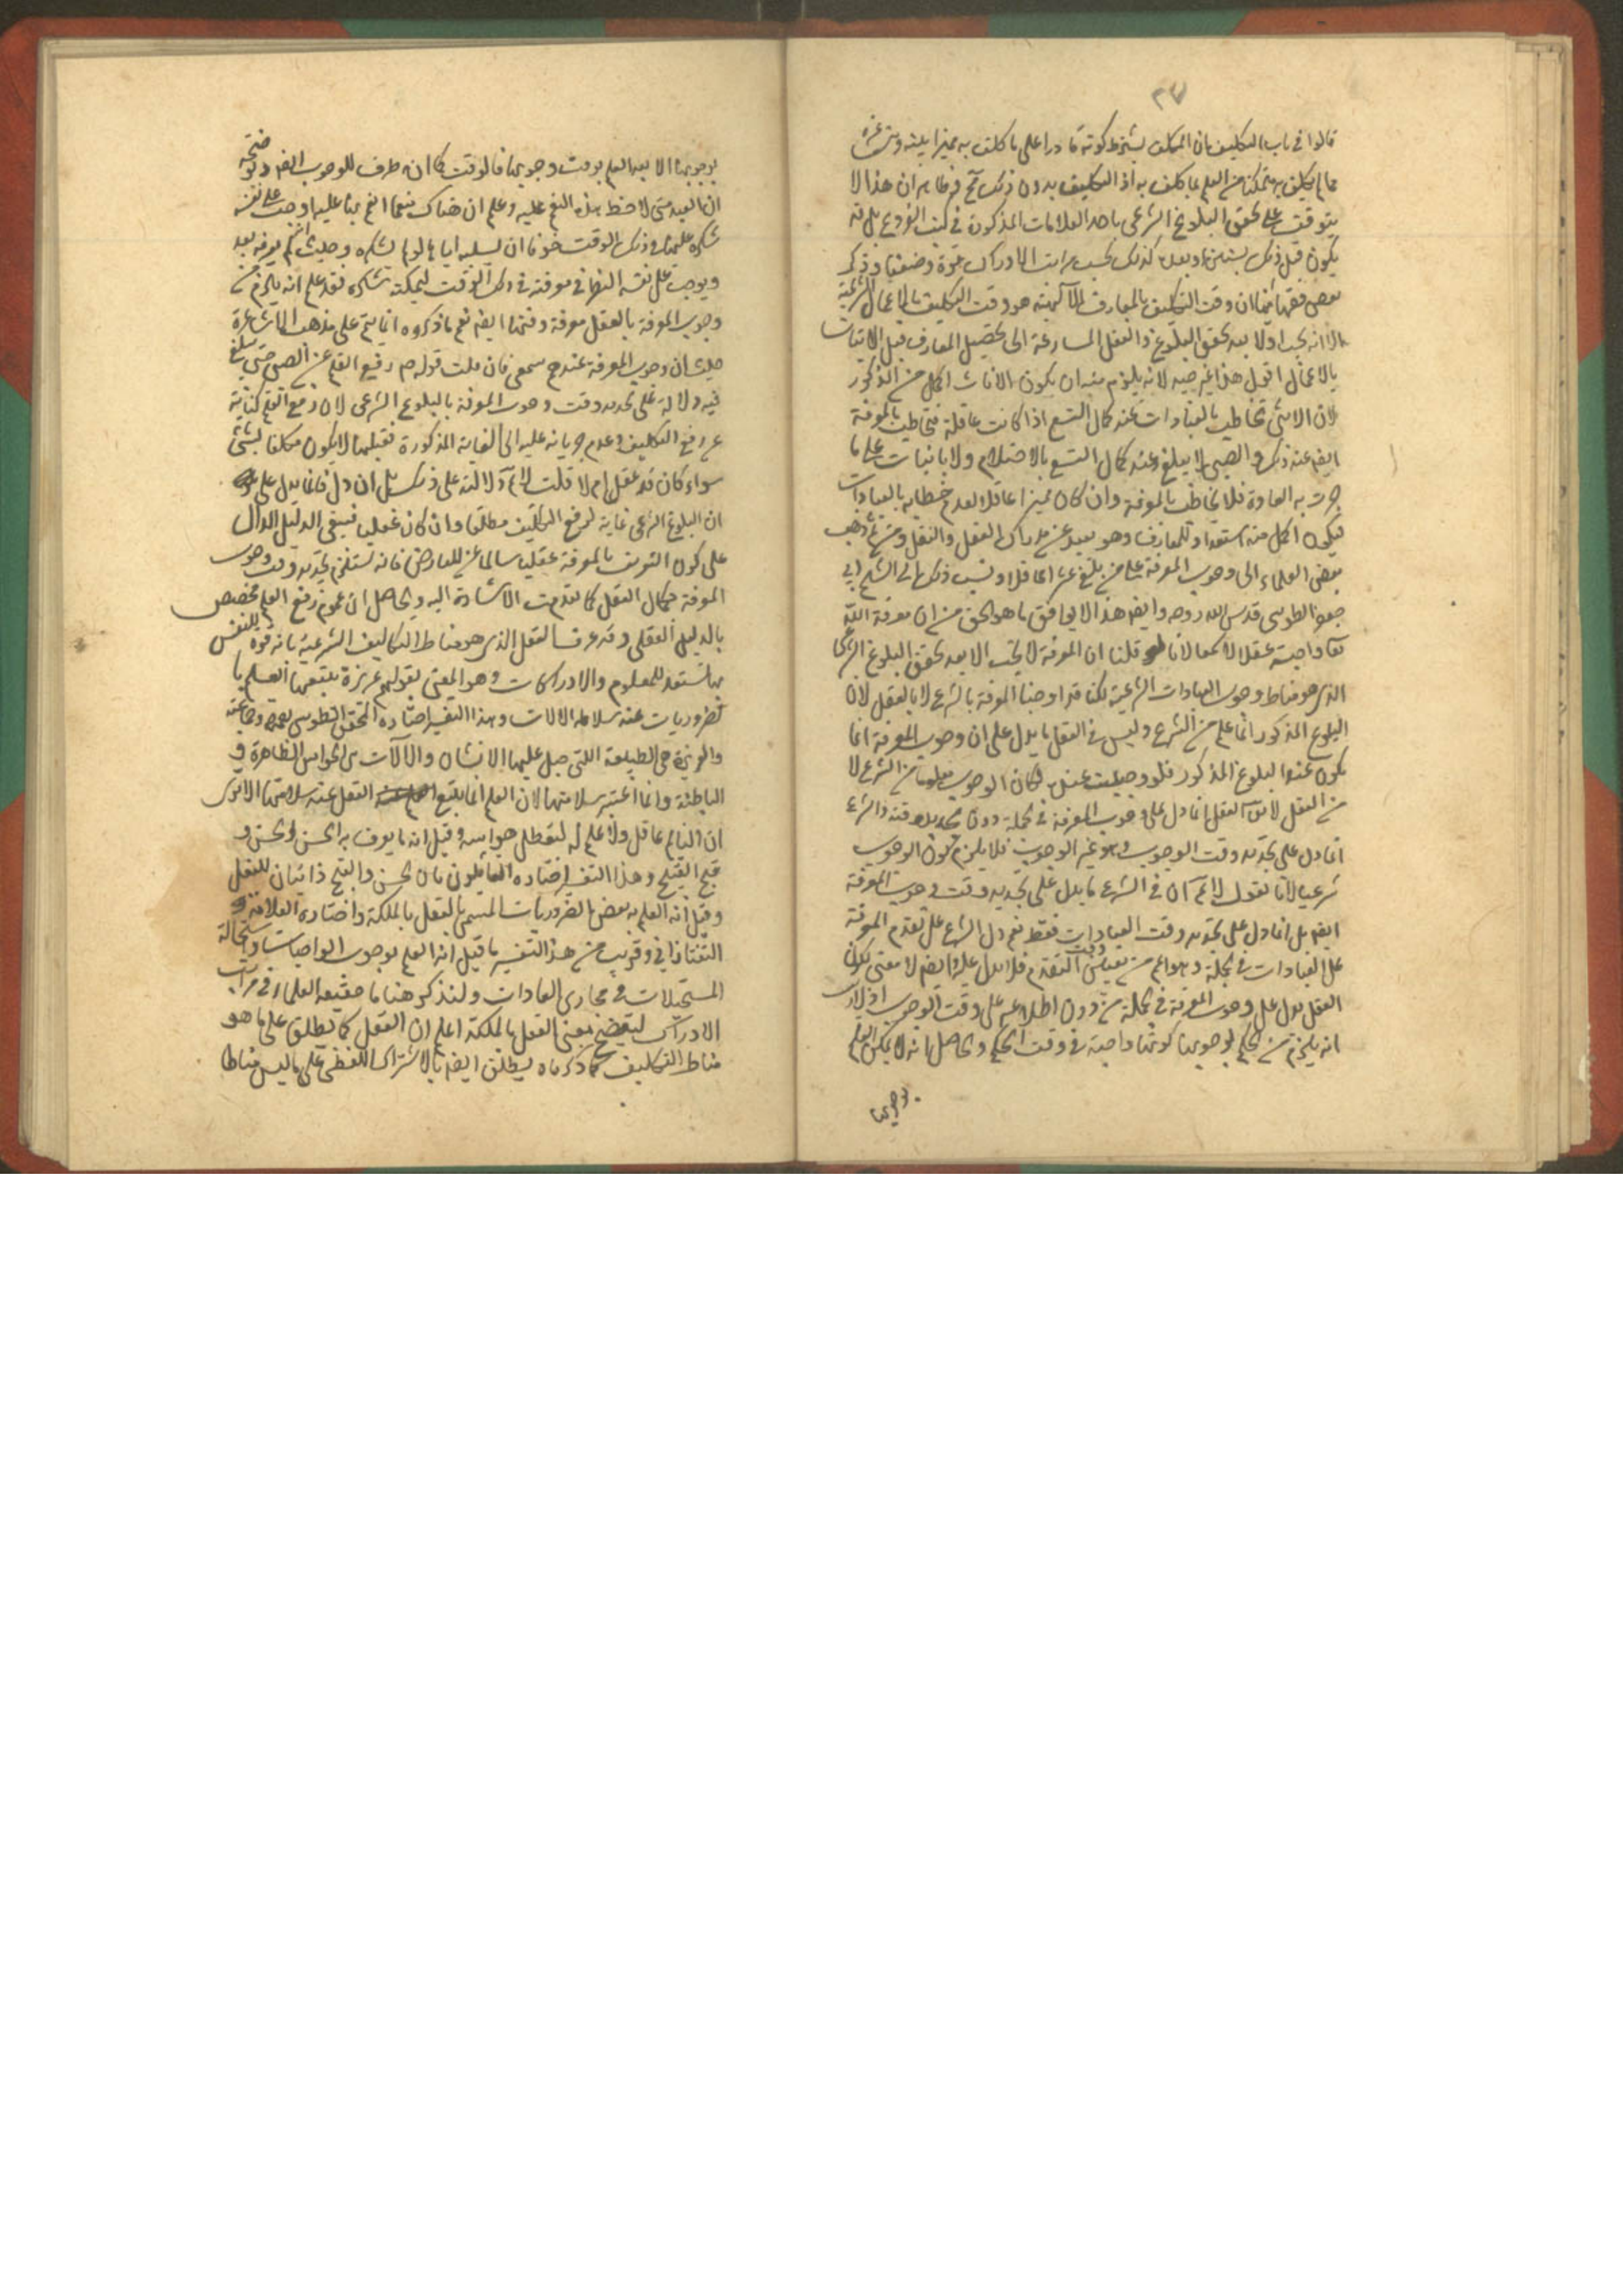 ٣٧
قالوا في باب التكليف بان المكلف يشترط كونه قادرا على ما كلف به مميزا بينه وبين غيره
مما لم يكلف به متمكنا من العلم بما كلف به اذ التكليف بدون ذلك مح فظاهر ان هذا لا
يتوقف على تحقق البلوغ الشرعي باحد العلامات المذكورة في كتب الفروع بل قد
يكون قبل ذلك بسنين وبعد كذلك بحسب مراتب الادراك قوة وضعفا وذكر
بعض فقهائنا ان وقت التكليف بالمعارف الالهية هو وقت التكليف بالاعمال الشرعية
الا انه يجب اولا بعد تحقق البلوغ والعقل المسارعة الى تحصيل المعارف قبل الاتيان
بالاعمال اقول هذا غير جيد لانه يلزم منه ان يكون الاناث اكمل من الذكور
لان الانثى تخاطب بالعبادات عند كمال التسع اذا كانت عاقلة فتخاطب بالمعرفة
ايضا عند ذلك والصبي لا يبلغ عند كمال التسع بالاحتلام ولا بانبات على ما
جرت به العادة فلا يخاطب بالمعرفة وان كان مميزا عاقلا لعدم خطابه بالعبادات
فيكون اكمل منه استعدادا للمعارف وهو بعيد عن مدارك العقل والنقل ومن ثم ذهب
بعض العلماء الى وجوب المعرفة على من بلغ عشرا عاقلا ونسب ذلك الى الشيخ ابي
جعفر الطوسي قدس الله روحه وايضا هذا لا يوافق ما هو الحق من ان معرفة الله
تعالى واجبة عقلا لا سمعا لانا لو قلنا ان المعرفة لا تجب الا بعد تحقق البلوغ الشرعي
الذي هو مناط وجوب العبادات الشرعية لكنا قد اوجبنا المعرفة بالشرع لا بالعقل لان
البلوغ المذكور انما علم من الشرع وليس في العقل ما يدل على ان وجوب المعرفة انما
يكون عند البلوغ المذكور فلو وجبت عنده لكان الوجوب معلوما من الشرع لا
من العقل لا يقال العقل انما دل على وجوب المعرفة في الجملة دون تحديد وقته والشرع
انما دل على تحديد وقت الوجوب وهو غير الوجوب فلا يلزم كون الوجوب
شرعيا لانا نقول لا نم ان في الشرع ما يدل على تحديد وقت وجوب المعرفة
ايضا بل انما دل على تحديد وقت العبادات فقط نعم دل الشرع على تقدم المعرفة
على العبادات في الجملة وهو اعم من تعيين وقت التقدم فلا يدل عليه وايضا لا معنى لكون
العقل يدل على وجوب المعرفة في الجملة من دون اطلاعه على وقت الوجوب اذ لا ريب
انه يلزم من الحكم بوجوبها كونها واجبة في وقت الحكم والحاصل انه لا يمكن العلم
بوجوبها
بوجوبها الا بعد العلم بوقت وجوبها فالوقت كما انه ظرف للوجوب ايضا وتوضيحه
ان العبد متى لاحظ هذه النعم عليه وعلم ان هناك منعما انعم بها عليه اوجب على نفسه
شكره عليها في ذلك الوقت خوفا ان يسلبه اياها لو لم يشكره وحيث انه لم يعرفه بعد
ويوجب على نفسه النظر في معرفته في ذلك الوقت ليمكنه شكره فقد علم انه يلزم من
وجوب المعرفة بالعقل معرفة وقتها ايضا نعم ما ذكروه انما يتم على مذهب الاشاعرة
حيث ان وجوب المعرفة عندهم سمعي فان قلت قوله ص رفع القلم عن الصبي حتى يبلغ
فيه دلالة على تحديد وقت وجوب المعرفة بالبلوغ الشرعي لان رفع القلم كناية
عن رفع التكليف وعدم جريانه عليه الى الغاية المذكورة فقبلها لا يكون مكلفا بشيء
سواء كان قد عقل ام لا قلت لا نم دلالته على ذلك بل ان دل فانما يدل على
ان البلوغ الشرعي غاية لرفع التكليف مطلقا وان كان عقليا فيبقى الدليل الدال
على كون التكليف بالمعرفة عقليا سالما عن المعارض فانه يستلزم تحديد وقت وجوب
المعرفة بكمال العقل كما تقدمت الاشارة اليه والحاصل ان عموم رفع القلم مخصص
بالدليل العقلي وقد عرف العقل الذي هو مناط التكاليف الشرعية بانه قوة للنفس
بها تستعد للعلوم والادراكات وهو المعنى بقولهم غريزة يتبعها العلم با
لضروريات عند سلامة الالات وهذا التفسير اختاره المحقق الطوسي وجماعة
والغريزة هي الطبيعة التي جبل عليها الانسان والالات هي الحواس الظاهرة و
الباطنة وانما اعتبر سلامتها لان العلم انما يتبع العقل عند سلامتها الا ترى
ان النائم عاقل ولا علم له لتعطل حواسه وقيل انه ما يعرف به الحسن الحسن و
قبح القبيح وهذا التفسير اختاره القائلون بان الحسن والقبح ذاتيان للعقل
وقيل انه العلم ببعض الضروريات المسمى بالعقل بالملكة واختاره العلامة
التفتازاني وقريب من هذا التفسير ما قيل انه العلم بوجوب الواجبات واستحالة
المستحيلات في مجاري العادات ولنذكر هنا ما حققه العلماء في مراتب
الادراك ليتضح معنى العقل بالملكة اعلم ان العقل كما يطلق على ما هو
مناط التكليف كما ذكرناه يطلق ايضا بالاشتراك اللفظي على ما ليس مناطا